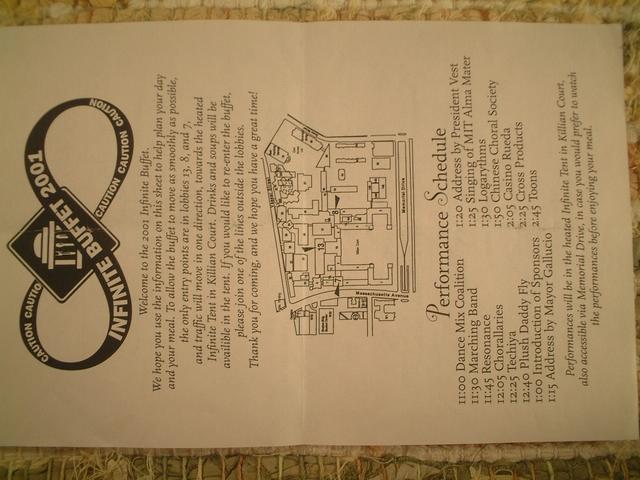 CAUTION CAUTIO
INFINITE BUFFET 2001
CAUTION CAUTION CAUTION
Welcome to the 2001 Infinite Buffet.
We hope you use the information on this sheet to help plan your day
and your meal. To allow the buffet to move as smoothly as possible,
the only entry points are in lobbies 13, 8, and 7,
and traffic will move in one direction, towards the heated
Infinite Tent in Killian Court. Drinks and soups will be
available in the tent. If you would like to re-enter the buffet,
please join one of the lines outside the lobbies.
Thank you for coming, and we hope you have a great time!
13
8
Memorial Drive
Massachusetts Avenue
Performance Schedule
11:00 Dance Mix Coalition
11:30 Marching Band
11:45 Resonance
12:05 Chorallaries
12:25 Techiya
12:40 Plush Daddy Fly
1:00 Introduction of Sponsors
1:15 Address by Mayor Gallucio
1:20 Address by President Vest
1:25 Singing of MIT Alma Mater
1:30 Logarythms
1:50 Chinese Choral Society
2:05 Casino Rueda
2:25 Cross Products
2:45 Toons
Performances will be in the heated Infinite Tent in Killian Court,
also accessible via Memorial Drive, in case you would prefer to watch
the performances before enjoying your meal.